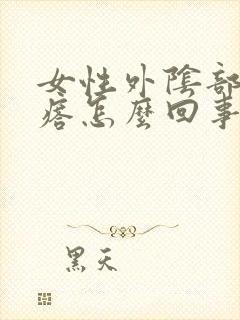 女性外陰部
瘩怎麼回事
黑天